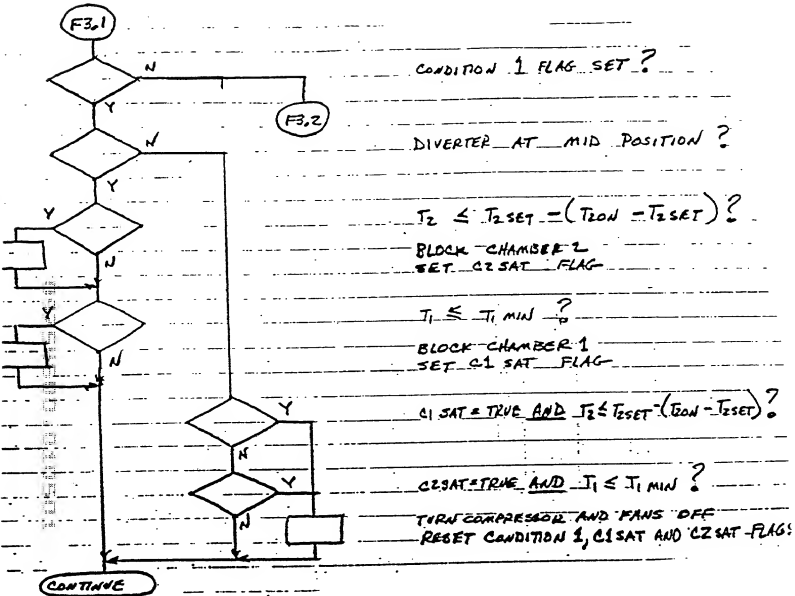 F3.1
N
CONDITION 1 FLAG SET ?
Y
F3.2
N
DIVERTER AT MID POSITION ?
Y
Y
T2 ≤ T2SET - (T2ON - T2SET) ?
BLOCK CHAMBER 2
N
SET C2SAT FLAG
Y
T1 ≤ T1 MIN ?
N
BLOCK CHAMBER 1
SET C1 SAT FLAG
Y
C1 SAT = TRUE AND T2 ≤ T2SET - (T2ON - T2SET) ?
N
Y
C2SAT = TRUE AND T1 ≤ T1 MIN ?
N
TURN COMPRESSOR AND FANS OFF
RESET CONDITION 1, C1SAT AND C2SAT FLAGS
CONTINUE